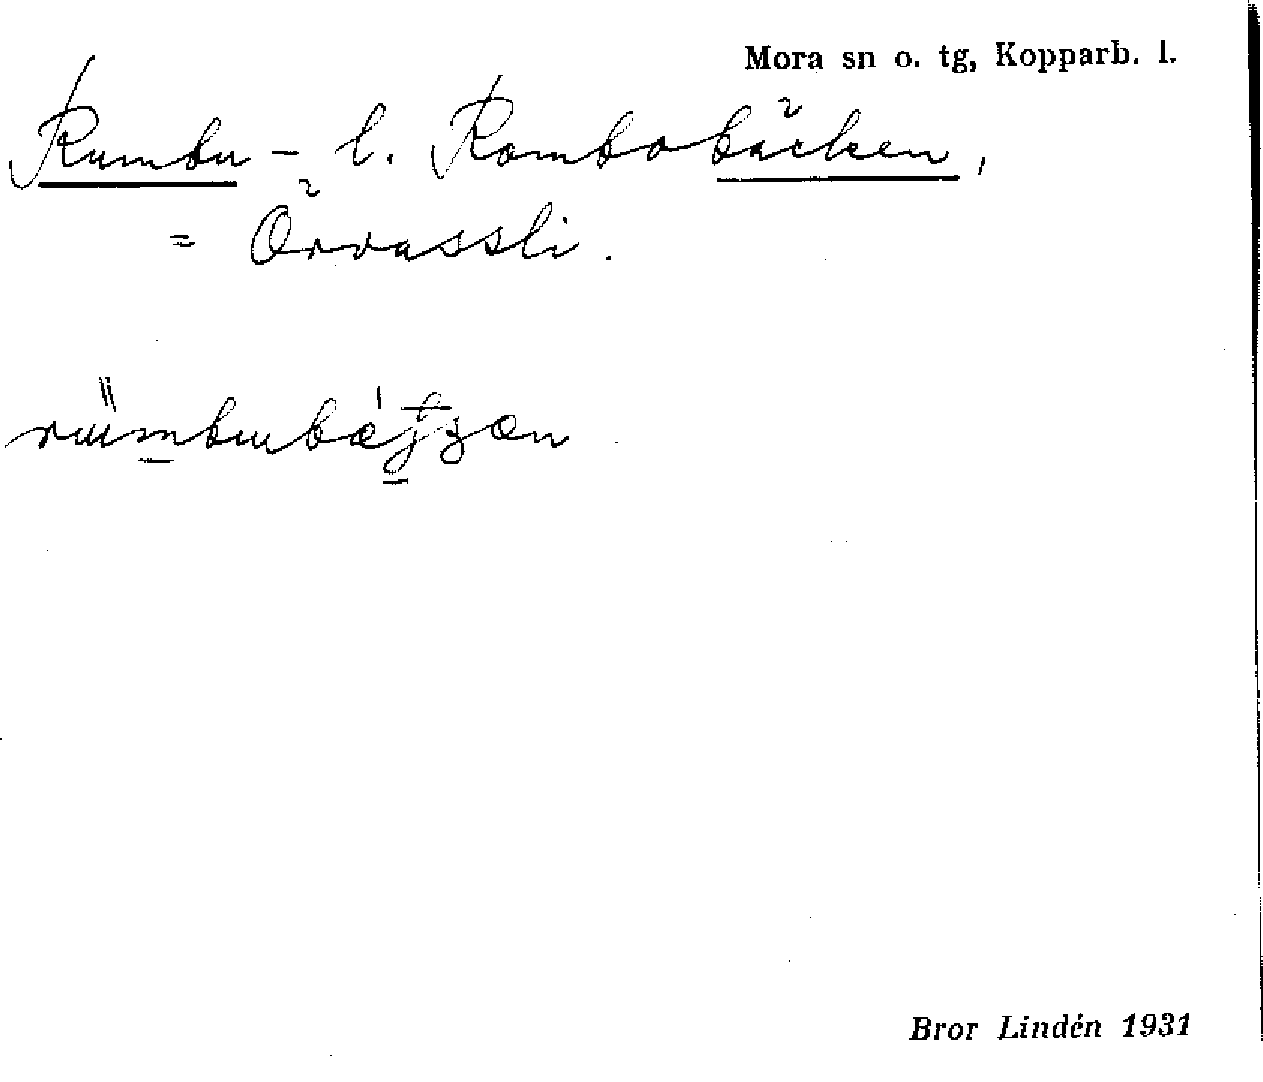 Mora sn o. tg, Kopparb. l.
Rumbu- l. Rombobäcken,
= Örvassli.
Bror Lindén 1931